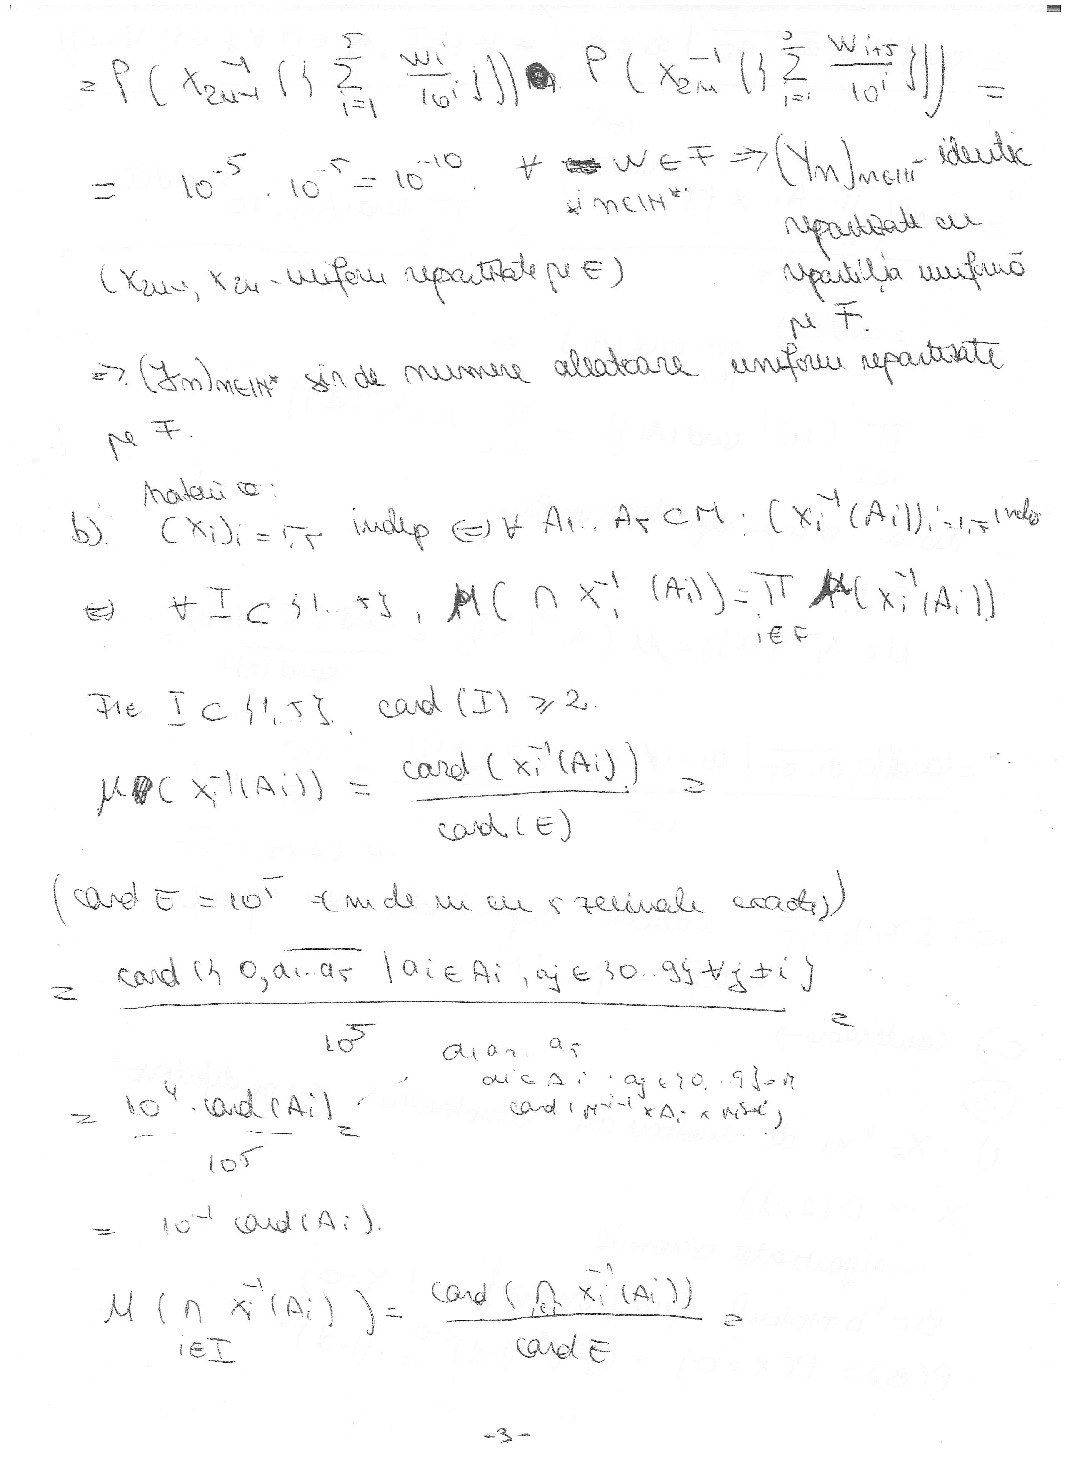 = P(X_{2n-1}^{-1}({\sum_{i=1}^{5} \frac{w_i}{10^i}})) · P(X_{2n}^{-1}({\sum_{i=1}^{5} \frac{w_{i+5}}{10^i}})) =
= 10^{-5} · 10^{-5} = 10^{-10}. ∀ w ∈ F și n ∈ ℕ* ⇒ (Y_n)_{n∈ℕ*} identic
repartizate cu
(X_{2n-1}, X_{2n} - uniform repartizate pe E) repartiția uniformă
pe F.
⇒ (Y_n)_{n∈ℕ*} șir de numere aleatoare uniform repartizate
pe F.
Notații:
b). (X_i)_{i=1,5} indep ⇔ ∀ A_1.. A_5 ⊂ M : (X_i^{-1}(A_i))_{i=1,5} indep
⇔ ∀ I ⊂ {1..5}, μ(∩ X_i^{-1}(A_i)) = ∏_{i∈F} μ(X_i^{-1}(A_i))
Fie I ⊂ {1,5}. card(I) ≥ 2.
μ(X_i^{-1}(A_i)) = \frac{card(X_i^{-1}(A_i))}{card(E)} =
(card E = 10^5 nr de cu 5 zecimale exacte)
= \frac{card({0,\overline{a_1..a_5} | a_i ∈ A_i, a_j ∈ {0..9} ∀ j ≠ i}}{10^5} =
a_1 a_2.. a_5
a_i ∈ A_i . a_j ∈ {0..9} = M
= \frac{10^4 · card(A_i)}{10^5} = card(M^{i-1} × A_i × M^{5-i})
= 10^{-1} card(A_i).
μ(∩_{i∈I} X_i^{-1}(A_i)) = \frac{card(∩_{i∈I} X_i^{-1}(A_i))}{card E} =
-3-